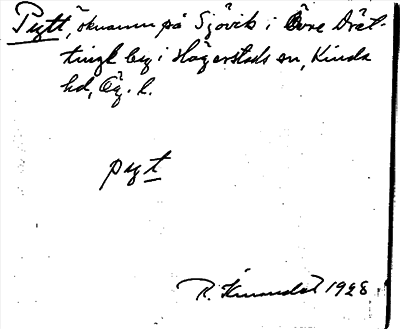 Pytt, öknamn på Sjövik i Övre Drät-
tinge by i Hägerstads sn, Kinda
hd, Ög. l.
pyt
R. 1928